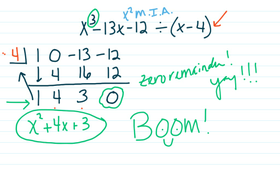 x² M.I.A.
x³ - 13x - 12 ÷ (x - 4)
4 | 1 0 -13 -12
4 16 12
1 4 3 0
zero remainder!
yay!!!
x² + 4x + 3
BOOM!